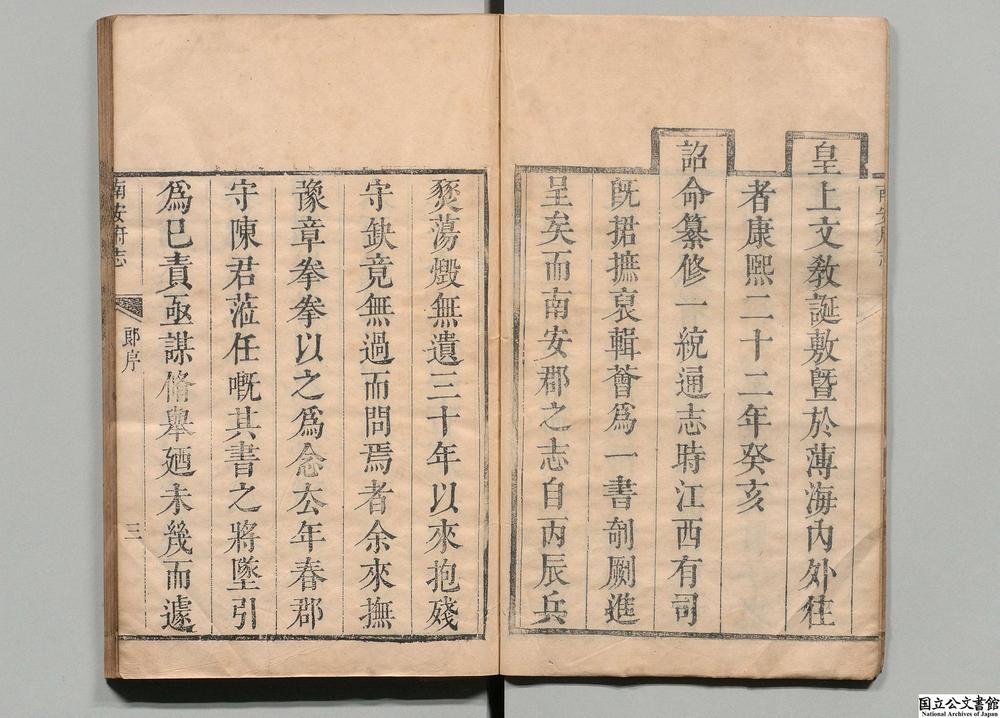 皇上文敎誕敷曁於薄海內外徃
者康熙二十二年癸亥
詔命纂修一統通志時江西有司
旣捃摭裒輯薈爲一書剞劂進
呈矣而南安郡之志自丙辰兵
燹蕩燬無遺三十年以來抱殘
守缺竟無過而問焉者余來撫
豫章拳拳以之爲念厺年春郡
守陳君蒞任嘅其書之將墜引
爲巳責亟謀脩舉廼未幾而遽
南安府志
郎序
三
国立公文書館
National Archives of Japan